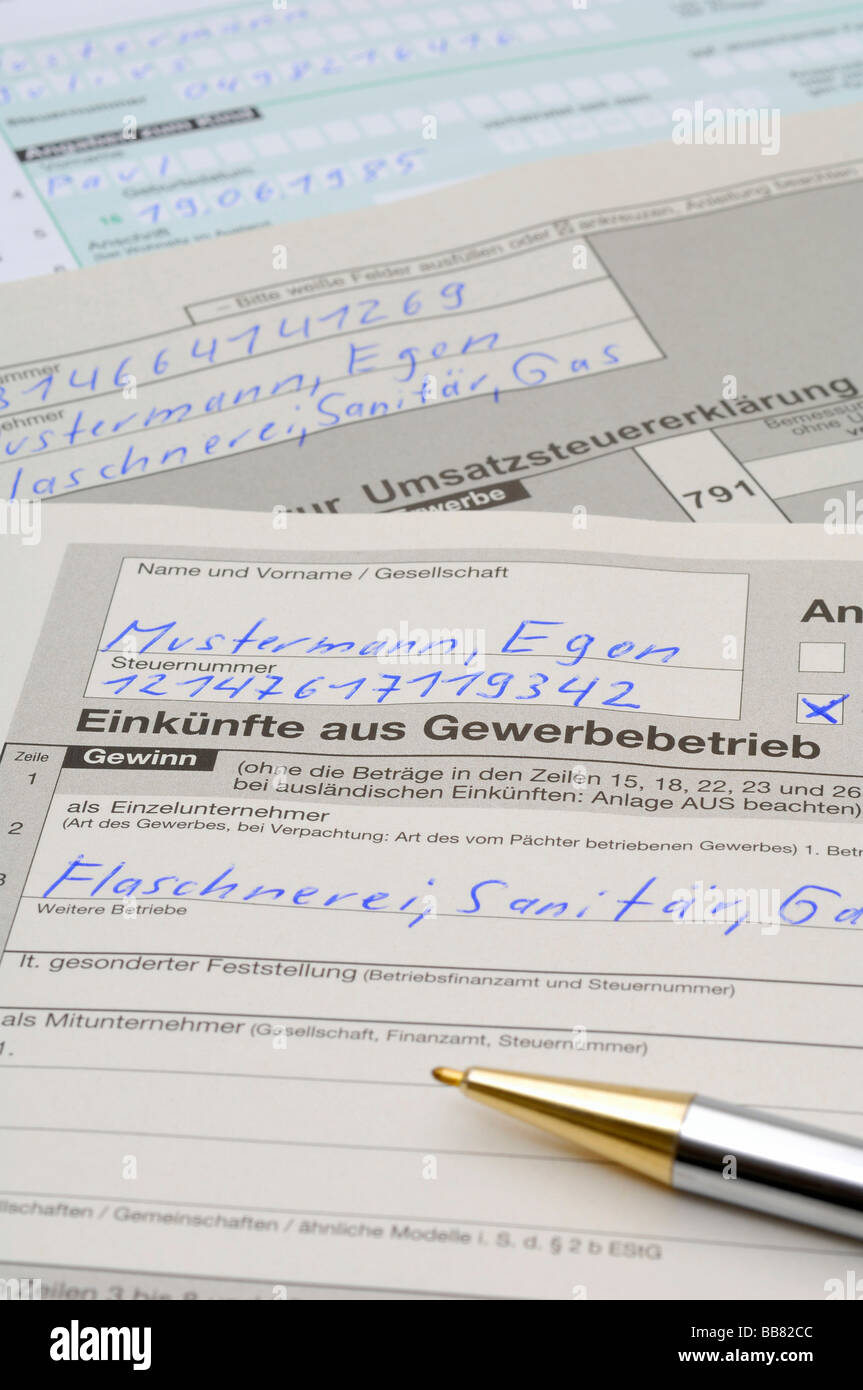 Mustermann
Julius
Steuernummer 0498216416
Angaben zum Kind
Vorname
Paul
Geburtsdatum
16 19.06.1985
Anschrift
4
5
– Bitte weiße Felder ausfüllen oder ☒ ankreuzen, Anleitung beachten
ummer
31466 4141269
nehmer
ustermann, Egon
laschnerei, Sanitär, Gas
ur Umsatzsteuererklärung
ewerbe
791
Bemessu
ohne U
Name und Vorname / Gesellschaft
Mustermann, Egon
Steuernummer
12147617119342
An
Einkünfte aus Gewerbebetrieb
Zeile
Gewinn
(ohne die Beträge in den Zeilen 15, 18, 22, 23 und 26
1
bei ausländischen Einkünften: Anlage AUS beachten)
als Einzelunternehmer
2
(Art des Gewerbes, bei Verpachtung: Art des vom Pächter betriebenen Gewerbes) 1. Betr
3
Flaschnerei, Sanitär, Ga
Weitere Betriebe
lt. gesonderter Feststellung (Betriebsfinanzamt und Steuernummer)
als Mitunternehmer (Gesellschaft, Finanzamt, Steuernummer)
1.
llschaften / Gemeinschaften / ähnliche Modelle i. S. d. § 2 b EStG
alamy
Image ID: BB82CC
www.alamy.com